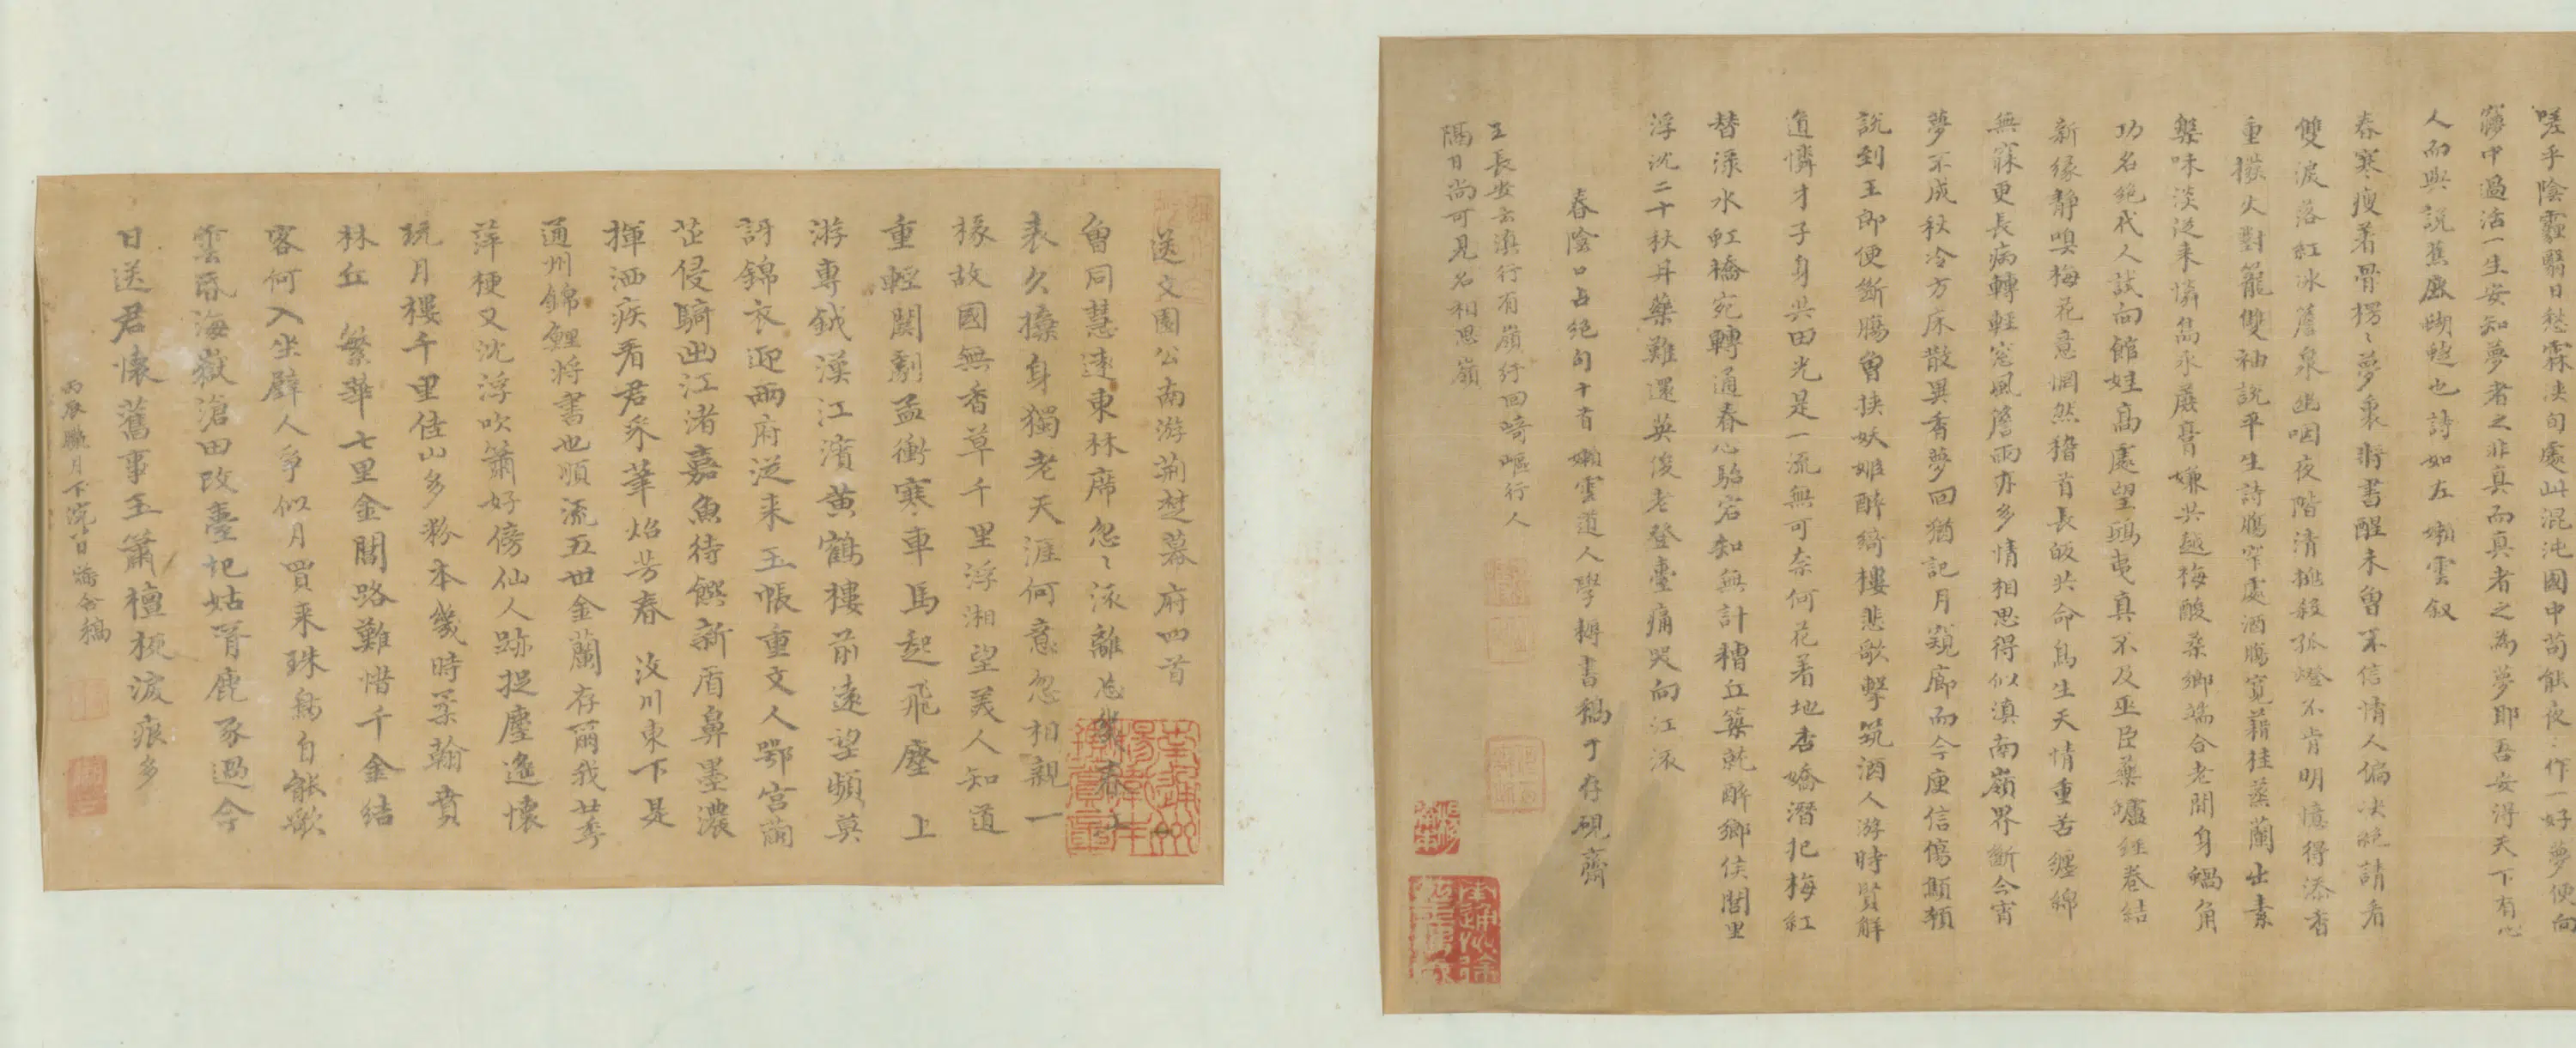 嗟乎陰霾翳日愁霖浹旬處此混沌國中苟能夜〻作一好夢便向
夢中過活一生安知夢者之非真而真者之為夢耶吾安得天下有心
人而與說蕉鹿蝴蝶也詩如左 嬾雲叙
春寒瘦著骨楞〻夢裏將書醒未曾不信情人偏決絕請看
雙淚落紅冰簷泉幽咽夜階清挑殺孤燈不肯明憶得添香
重撥火對籠雙袖說平生詩腸窄處酒腸寬藉桂蒸蘭出素
槃味淡從來憐雋永蕨膏嫌共越梅酸柔鄉端合老閒身蝸角
功名絕代人試向館娃高處望鴟夷真不及巫臣藥爐經卷結
新緣靜嗅梅花意惘然稽首長皈共命鳥生天情重苦纏綿
無寐更長病轉輕窓風簷雨亦多情相思得似滇南嶺界斷今宵
夢不成秋冷方床散異香夢回猶記月窺廊而今庾信傷顛頷
說到王郎便斷腸曾挾妖姬醉綺樓悲歌擊筑酒人游時賢解
道憐才子身共田光是一流無可奈何花著地杏嬌潛犯梅紅
替淥水虹橋宛轉通春心駘宕知無計糟丘築就醉鄉侯閭里
浮沈二十秋丹藥難還英俊老登臺痛哭向江流
春陰口占絕句十首 嬾雲道人學耨書稿于存硯齋
王長安云滇行有嶺紆回崎嶇行人
隔日尚可見名相思嶺
送文園公南游荊楚幕府四首
曾同慧遠東林席忽〻流離
表久操身獨老天涯何意忽相親一
椽故國無香草千里浮湘望美人知道
重輕關劇孟衝寒車馬起飛塵 上
游專鉞漢江濱黃鶴樓前遠望頻莫
訝錦衣迎兩府從來玉帳重文人鄂宮蘭
芷侵騎出江渚嘉魚待饌新盾鼻墨濃
揮洒疾看君采筆炤芳春 汶川東下是
通州錦鯉將書也順流五世金蘭存爾我廿季
萍梗又沈浮吹簫好傍仙人跡捉麈遙懷
玩月樓千里佳山多粉本幾時柔翰賁
林丘 繁華七里金閶路難惜千金結
客何入坐璧人爭似月買來珠
雲昏海嶽滄田改臺圮姑胥鹿豕過今
日送君懷舊事玉簫檀板淚痕多
丙辰臘月下浣